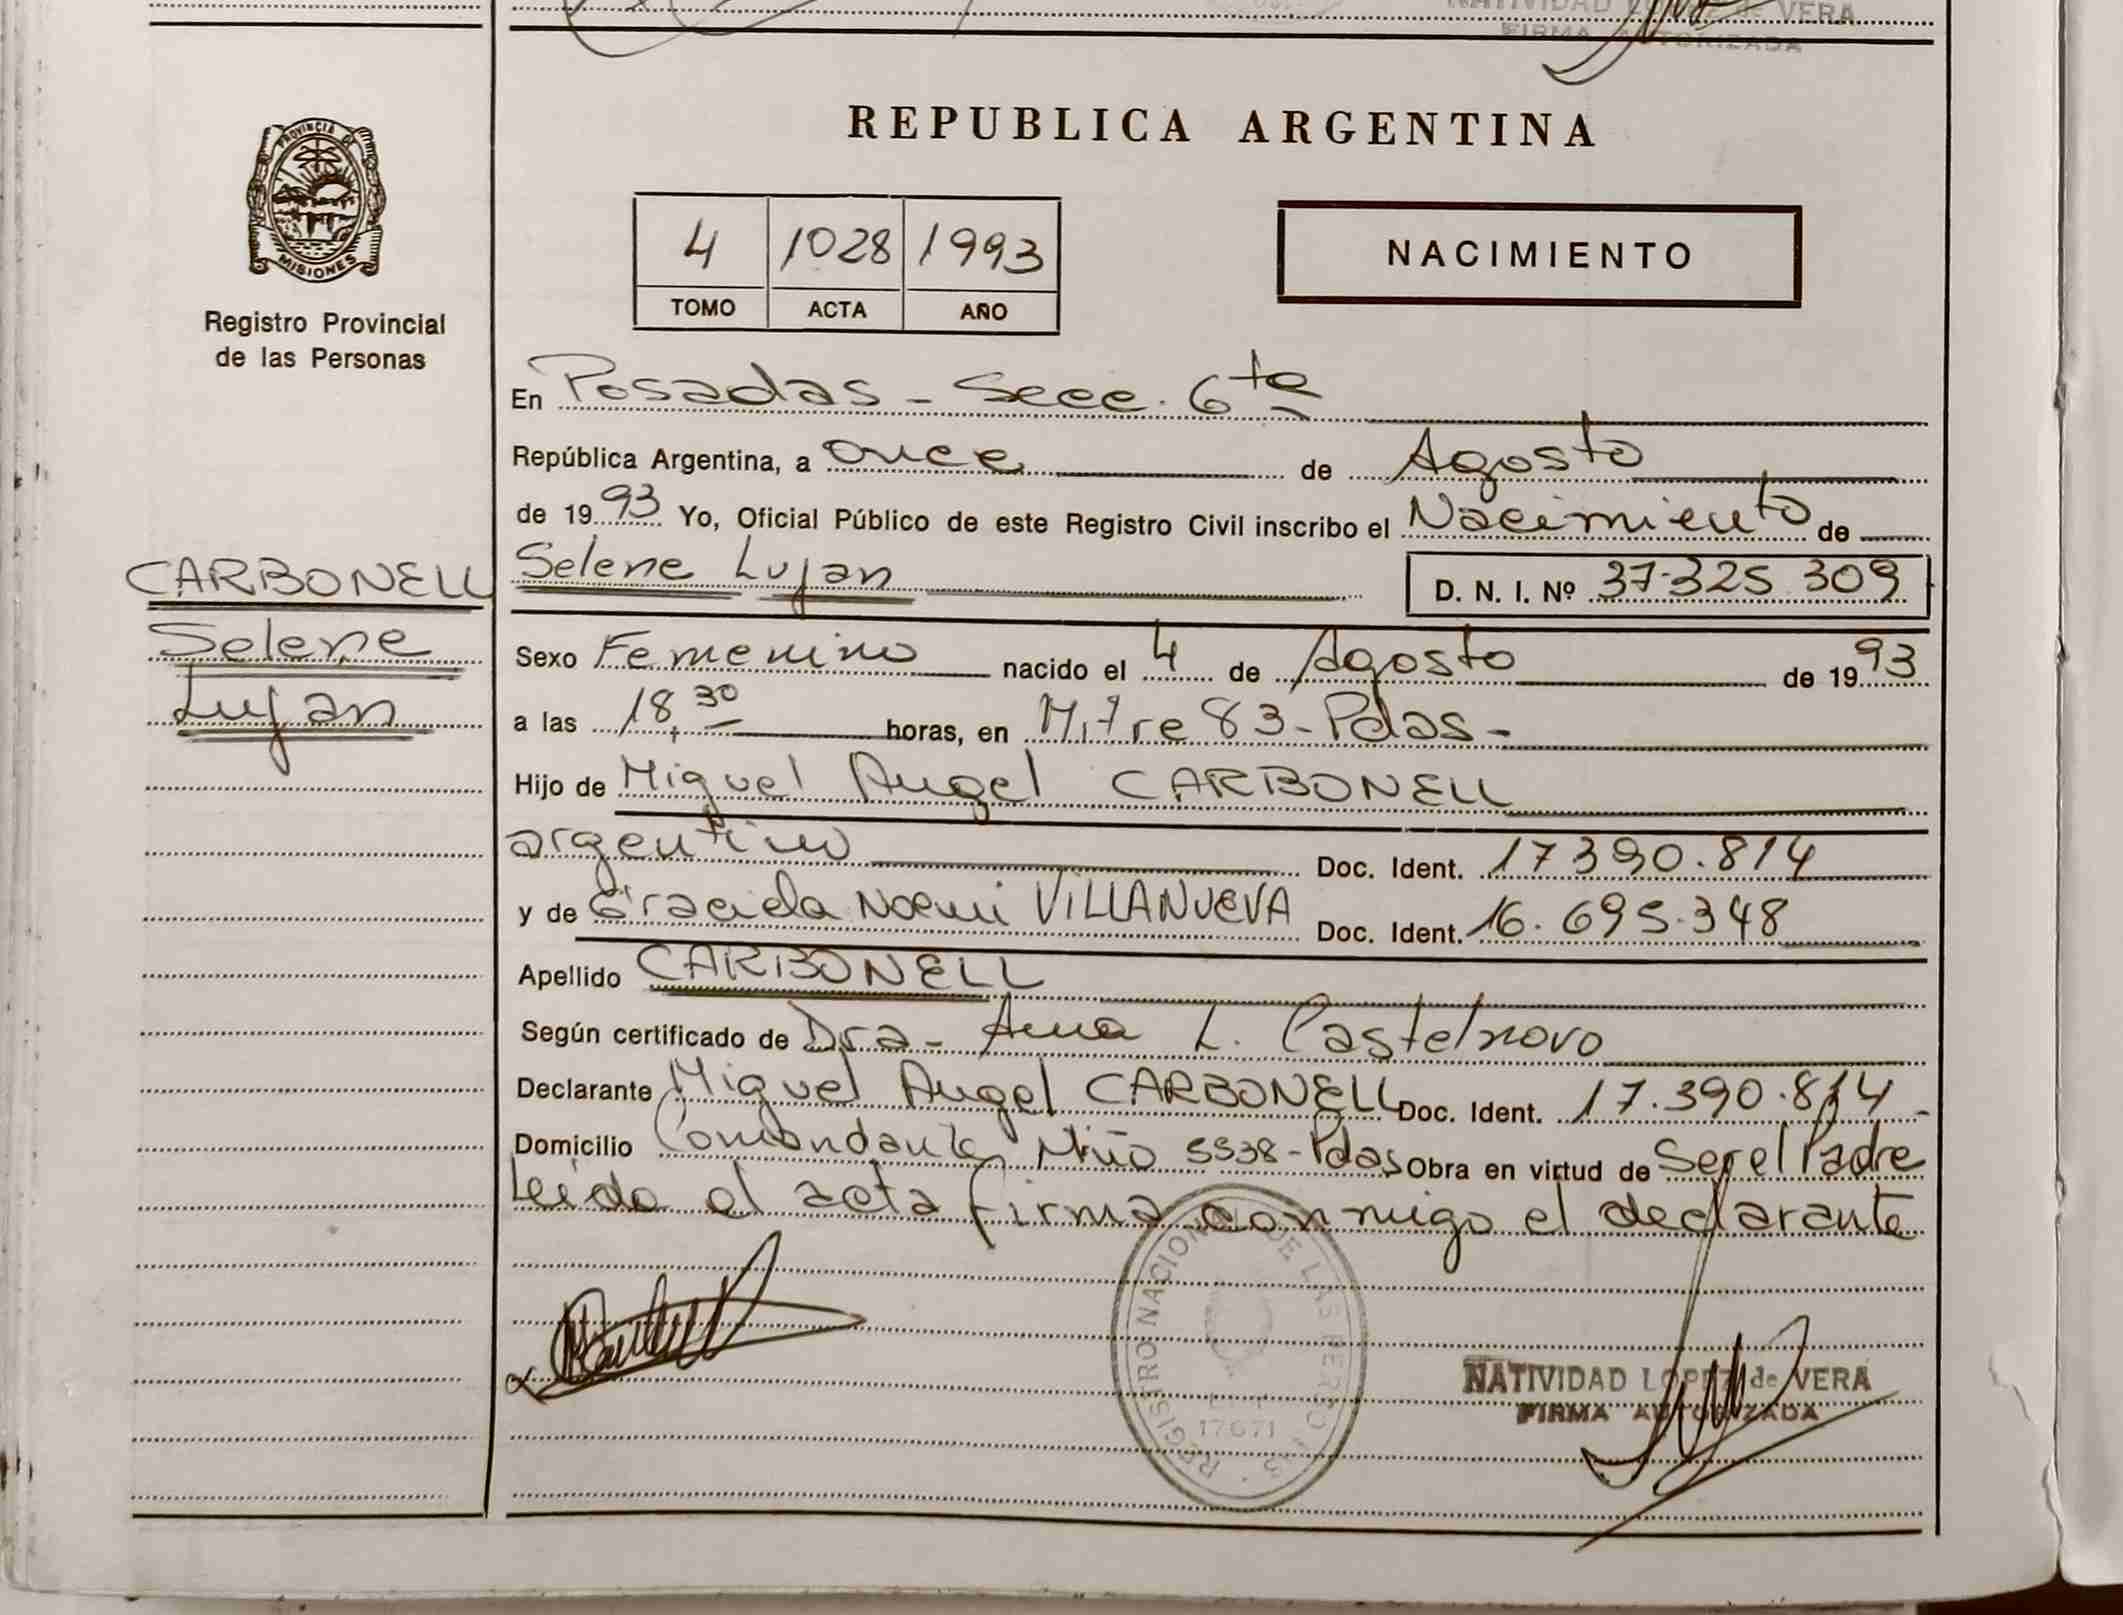 NATIVIDAD LOPEZ de VERA
FIRMA AUTORIZADA
PROVINCIA DE
MISIONES
Registro Provincial
de las Personas
CARBONELL
Selene
Lujan
REPUBLICA ARGENTINA
4 1028 1993
TOMO ACTA AÑO
NACIMIENTO
En Posadas - Secc. 6ta
República Argentina, a once de Agosto
de 1993 Yo, Oficial Público de este Registro Civil inscribo el Nacimiento de
Selene Lujan D. N. I. Nº 37.325.309
Sexo Femenino nacido el 4 de Agosto de 1993
a las 18,30 horas, en Mitre 83 - Pdas -
Hijo de Miguel Angel CARBONELL
argentino Doc. Ident. 17390.814
y de Graciela Noemi VILLANUEVA Doc. Ident. 16.695.348
Apellido CARBONELL
Según certificado de Dra - Ana L. Castelnovo
Declarante Miguel Angel CARBONELL Doc. Ident. 17.390.814 -
Domicilio Comandante Miño 5538 - Pdas Obra en virtud de Ser el Padre
Leida el acta firma conmigo el declarante
REGISTRO NACIONAL DE LAS PERSONAS
17671
NATIVIDAD LOPEZ de VERA
FIRMA AUTORIZADA